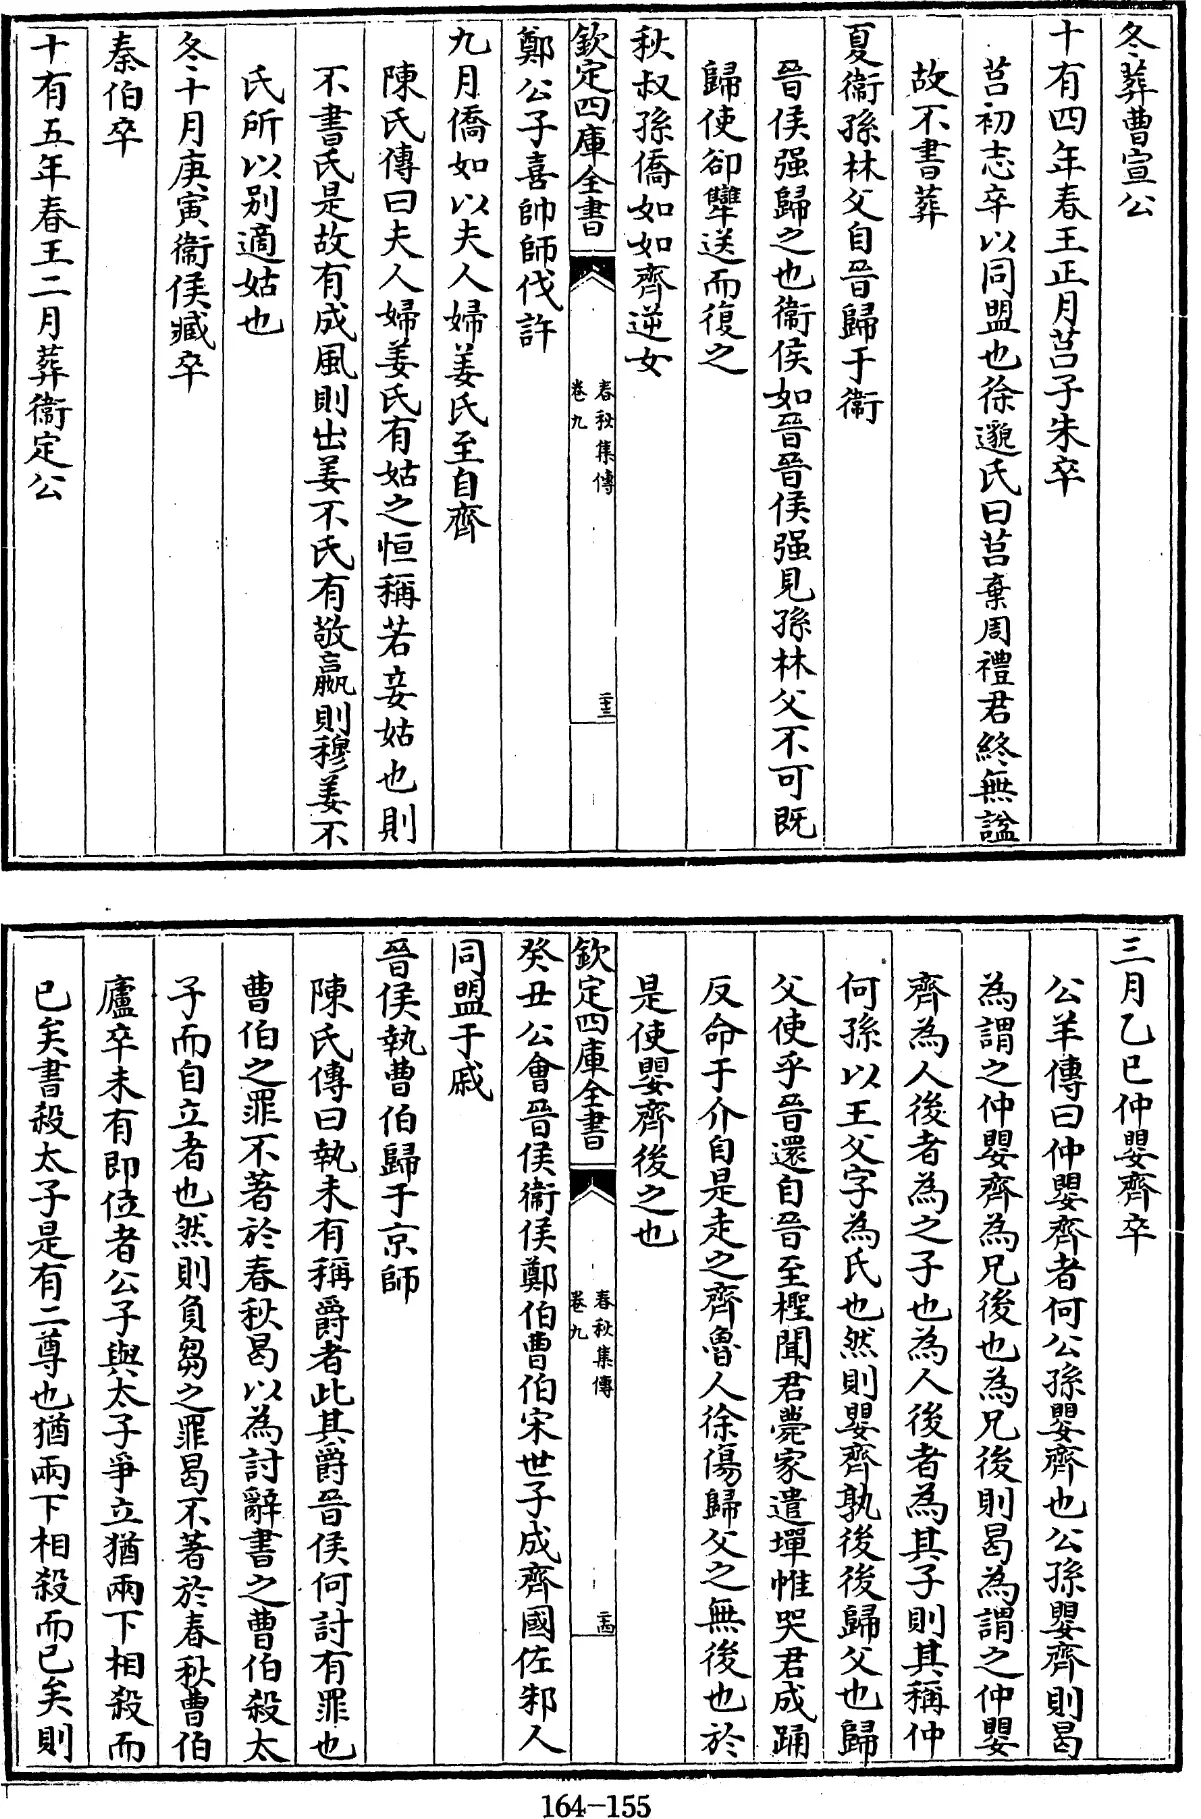 冬葬曹宣公
十有四年春王正月莒子朱卒
莒初志卒以同盟也徐邈氏曰莒棄周禮君終無諡
故不書葬
夏衞孫林父自晉歸于衞
晉侯强歸之也衞侯如晉晉侯强見孫林父不可既
歸使郤犫送而復之
秋叔孫僑如如齊逆女
欽定四庫全書
春秋集傳
卷九
二十三
鄭公子喜帥師伐許
九月僑如以夫人婦姜氏至自齊
陳氏傳曰夫人婦姜氏有姑之恒稱若妾姑也則
不書氏是故有成風則出姜不氏有敬嬴則穆姜不
氏所以别適姑也
冬十月庚寅衞侯臧卒
秦伯卒
十有五年春王二月葬衞定公
三月乙巳仲嬰齊卒
公羊傳曰仲嬰齊者何公孫嬰齊也公孫嬰齊則曷
為謂之仲嬰齊為兄後也為兄後則曷為謂之仲嬰
齊為人後者為之子也為人後者為其子則其稱仲
何孫以王父字為氏也然則嬰齊孰後後歸父也歸
父使乎晉還自晉至檉聞君薨家遣墠帷哭君成踊
反命于介自是走之齊魯人徐傷歸父之無後也於
是使嬰齊後之也
欽定四庫全書
春秋集傳
卷九
二十四
癸丑公會晉侯衞侯鄭伯曹伯宋世子成齊國佐邾人
同盟于戚
晉侯執曹伯歸于京師
陳氏傳曰執未有稱爵者此其爵晉侯何討有罪也
曹伯之罪不著於春秋曷以為討辭書之曹伯殺太
子而自立者也然則負芻之罪曷不著於春秋曹伯
廬卒未有即位者公子與太子爭立猶兩下相殺而
已矣書殺太子是有二尊也猶兩下相殺而已矣則
164-155